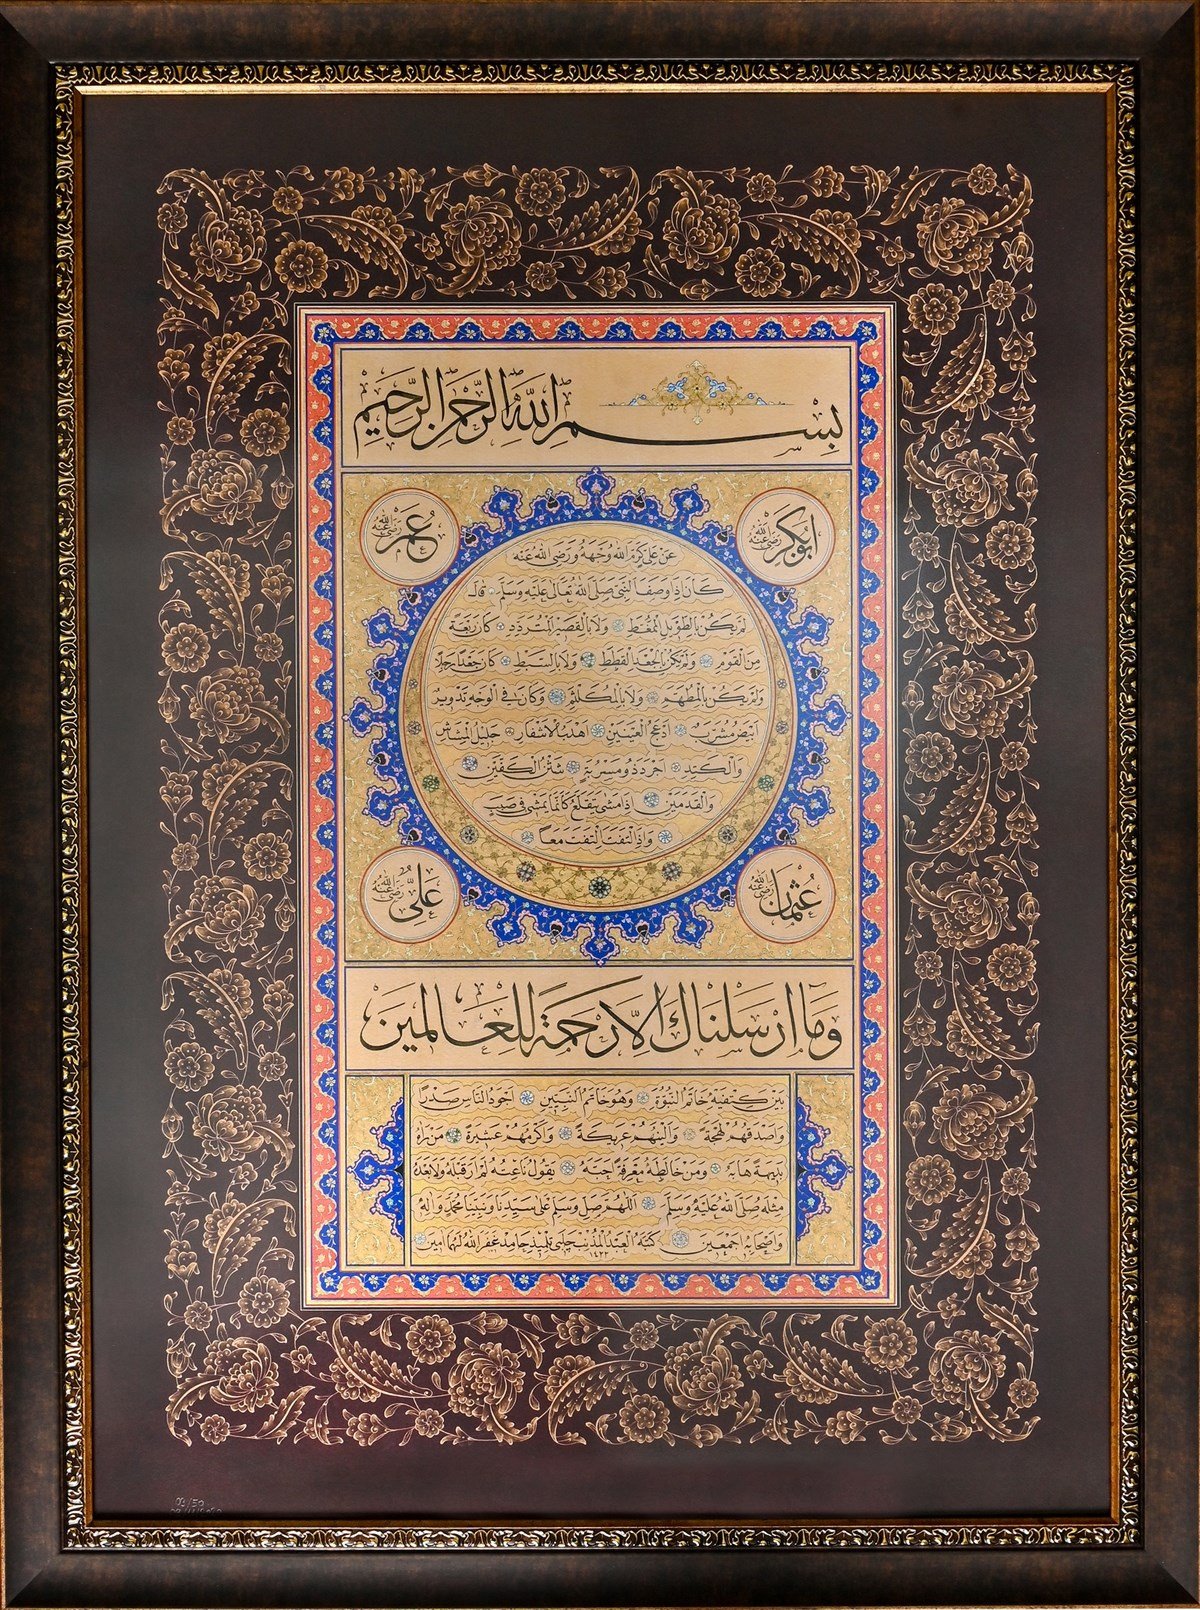 بِسْمِ اللهِ الرَّحْمٰنِ الرَّحِيمِ
ابوبكر رضي الله عنه
عمر رضي الله عنه
عن علي كرم الله وجهه ورضي الله عنه
كان اذا وصف النبي صلى الله تعالى عليه وسلم قال
لم يكن بالطويل الممغط ولا بالقصير المتردد كان ربعة
من القوم ولم يكن بالجعد القطط ولا بالسبط كان جعدا رجلا
ولم يكن بالمطهم ولا بالمكلثم وكان في الوجه تدوير
ابيض مشرب ادعج العينين اهدب الاشفار جليل المشاش
والكتد اجرد ذو مسربة شثن الكفين
والقدمين اذا مشى يتقلع كأنما يمشي في صبب
واذا التفت التفت معا
عثمان رضي الله عنه
علي رضي الله عنه
وما ارسلناك الا رحمة للعالمين
بين كتفيه خاتم النبوة وهو خاتم النبيين اجود الناس صدرا
واصدقهم لهجة والينهم عريكة واكرمهم عشيرة من راه
بديهة هابه ومن خالطه معرفة احبه يقول ناعته لم ار قبله ولا بعده
مثله صلى الله عليه وسلم اللهم صل وسلم على سيدنا ونبينا محمد واله
واصحابه اجمعين كتبه العبد المذنب چلبي تلميذ حامد غفر الله لهما امين
١٤٢٢
09/50